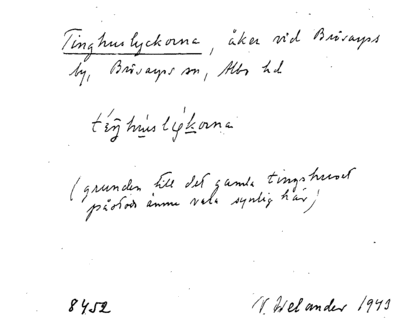 Tinghuslyckorna, åker vid Brösarps
by, Brösarps sn, Albo hd
(grunden till det gamla tingshuset
påstods ännu vara synlig här)
8452 N. Welander 1943